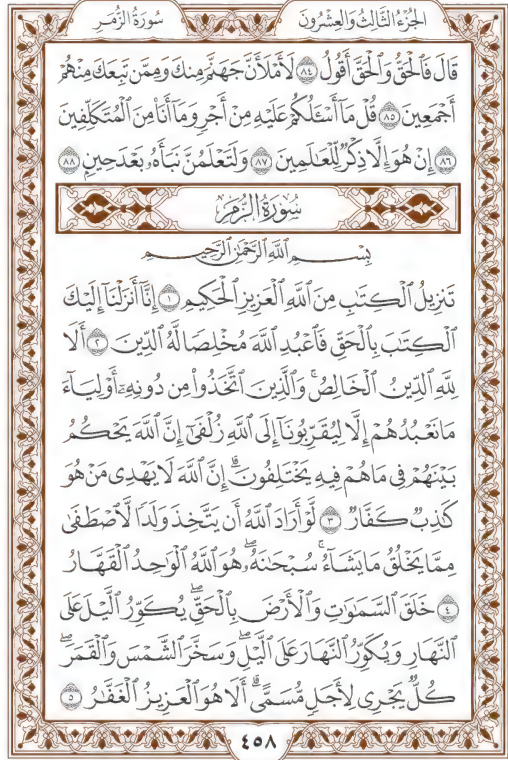 الجُزْءُ الثَّالِثُ وَالعِشْرُونَ
سُورَةُ الزُّمَرِ
قَالَ فَٱلْحَقُّ وَٱلْحَقَّ أَقُولُ ٨٤ لَأَمْلَأَنَّ جَهَنَّمَ مِنكَ وَمِمَّن تَبِعَكَ مِنْهُمْ
أَجْمَعِينَ ٨٥ قُلْ مَآ أَسْـَٔلُكُمْ عَلَيْهِ مِنْ أَجْرٍ وَمَآ أَنَا۠ مِنَ ٱلْمُتَكَلِّفِينَ
٨٦ إِنْ هُوَ إِلَّا ذِكْرٌ لِّلْعَـٰلَمِينَ ٨٧ وَلَتَعْلَمُنَّ نَبَأَهُۥ بَعْدَ حِينِۭ ٨٨
سُورَةُ الزُّمَرِ
بِسْمِ ٱللَّهِ ٱلرَّحْمَـٰنِ ٱلرَّحِيمِ
تَنزِيلُ ٱلْكِتَـٰبِ مِنَ ٱللَّهِ ٱلْعَزِيزِ ٱلْحَكِيمِ ١ إِنَّآ أَنزَلْنَآ إِلَيْكَ
ٱلْكِتَـٰبَ بِٱلْحَقِّ فَٱعْبُدِ ٱللَّهَ مُخْلِصًا لَّهُ ٱلدِّينَ ٢ أَلَا
لِلَّهِ ٱلدِّينُ ٱلْخَالِصُ ۚ وَٱلَّذِينَ ٱتَّخَذُوا۟ مِن دُونِهِۦٓ أَوْلِيَآءَ
مَا نَعْبُدُهُمْ إِلَّا لِيُقَرِّبُونَآ إِلَى ٱللَّهِ زُلْفَىٰٓ إِنَّ ٱللَّهَ يَحْكُمُ
بَيْنَهُمْ فِى مَا هُمْ فِيهِ يَخْتَلِفُونَ ۗ إِنَّ ٱللَّهَ لَا يَهْدِى مَنْ هُوَ
كَـٰذِبٌ كَفَّارٌ ٣ لَّوْ أَرَادَ ٱللَّهُ أَن يَتَّخِذَ وَلَدًا لَّٱصْطَفَىٰ
مِمَّا يَخْلُقُ مَا يَشَآءُ ۚ سُبْحَـٰنَهُۥ ۖ هُوَ ٱللَّهُ ٱلْوَٰحِدُ ٱلْقَهَّارُ
٤ خَلَقَ ٱلسَّمَـٰوَٰتِ وَٱلْأَرْضَ بِٱلْحَقِّ ۖ يُكَوِّرُ ٱلَّيْلَ عَلَى
ٱلنَّهَارِ وَيُكَوِّرُ ٱلنَّهَارَ عَلَى ٱلَّيْلِ ۖ وَسَخَّرَ ٱلشَّمْسَ وَٱلْقَمَرَ ۖ
كُلٌّ يَجْرِى لِأَجَلٍ مُّسَمًّى ۗ أَلَا هُوَ ٱلْعَزِيزُ ٱلْغَفَّـٰرُ ٥
٤٥٨